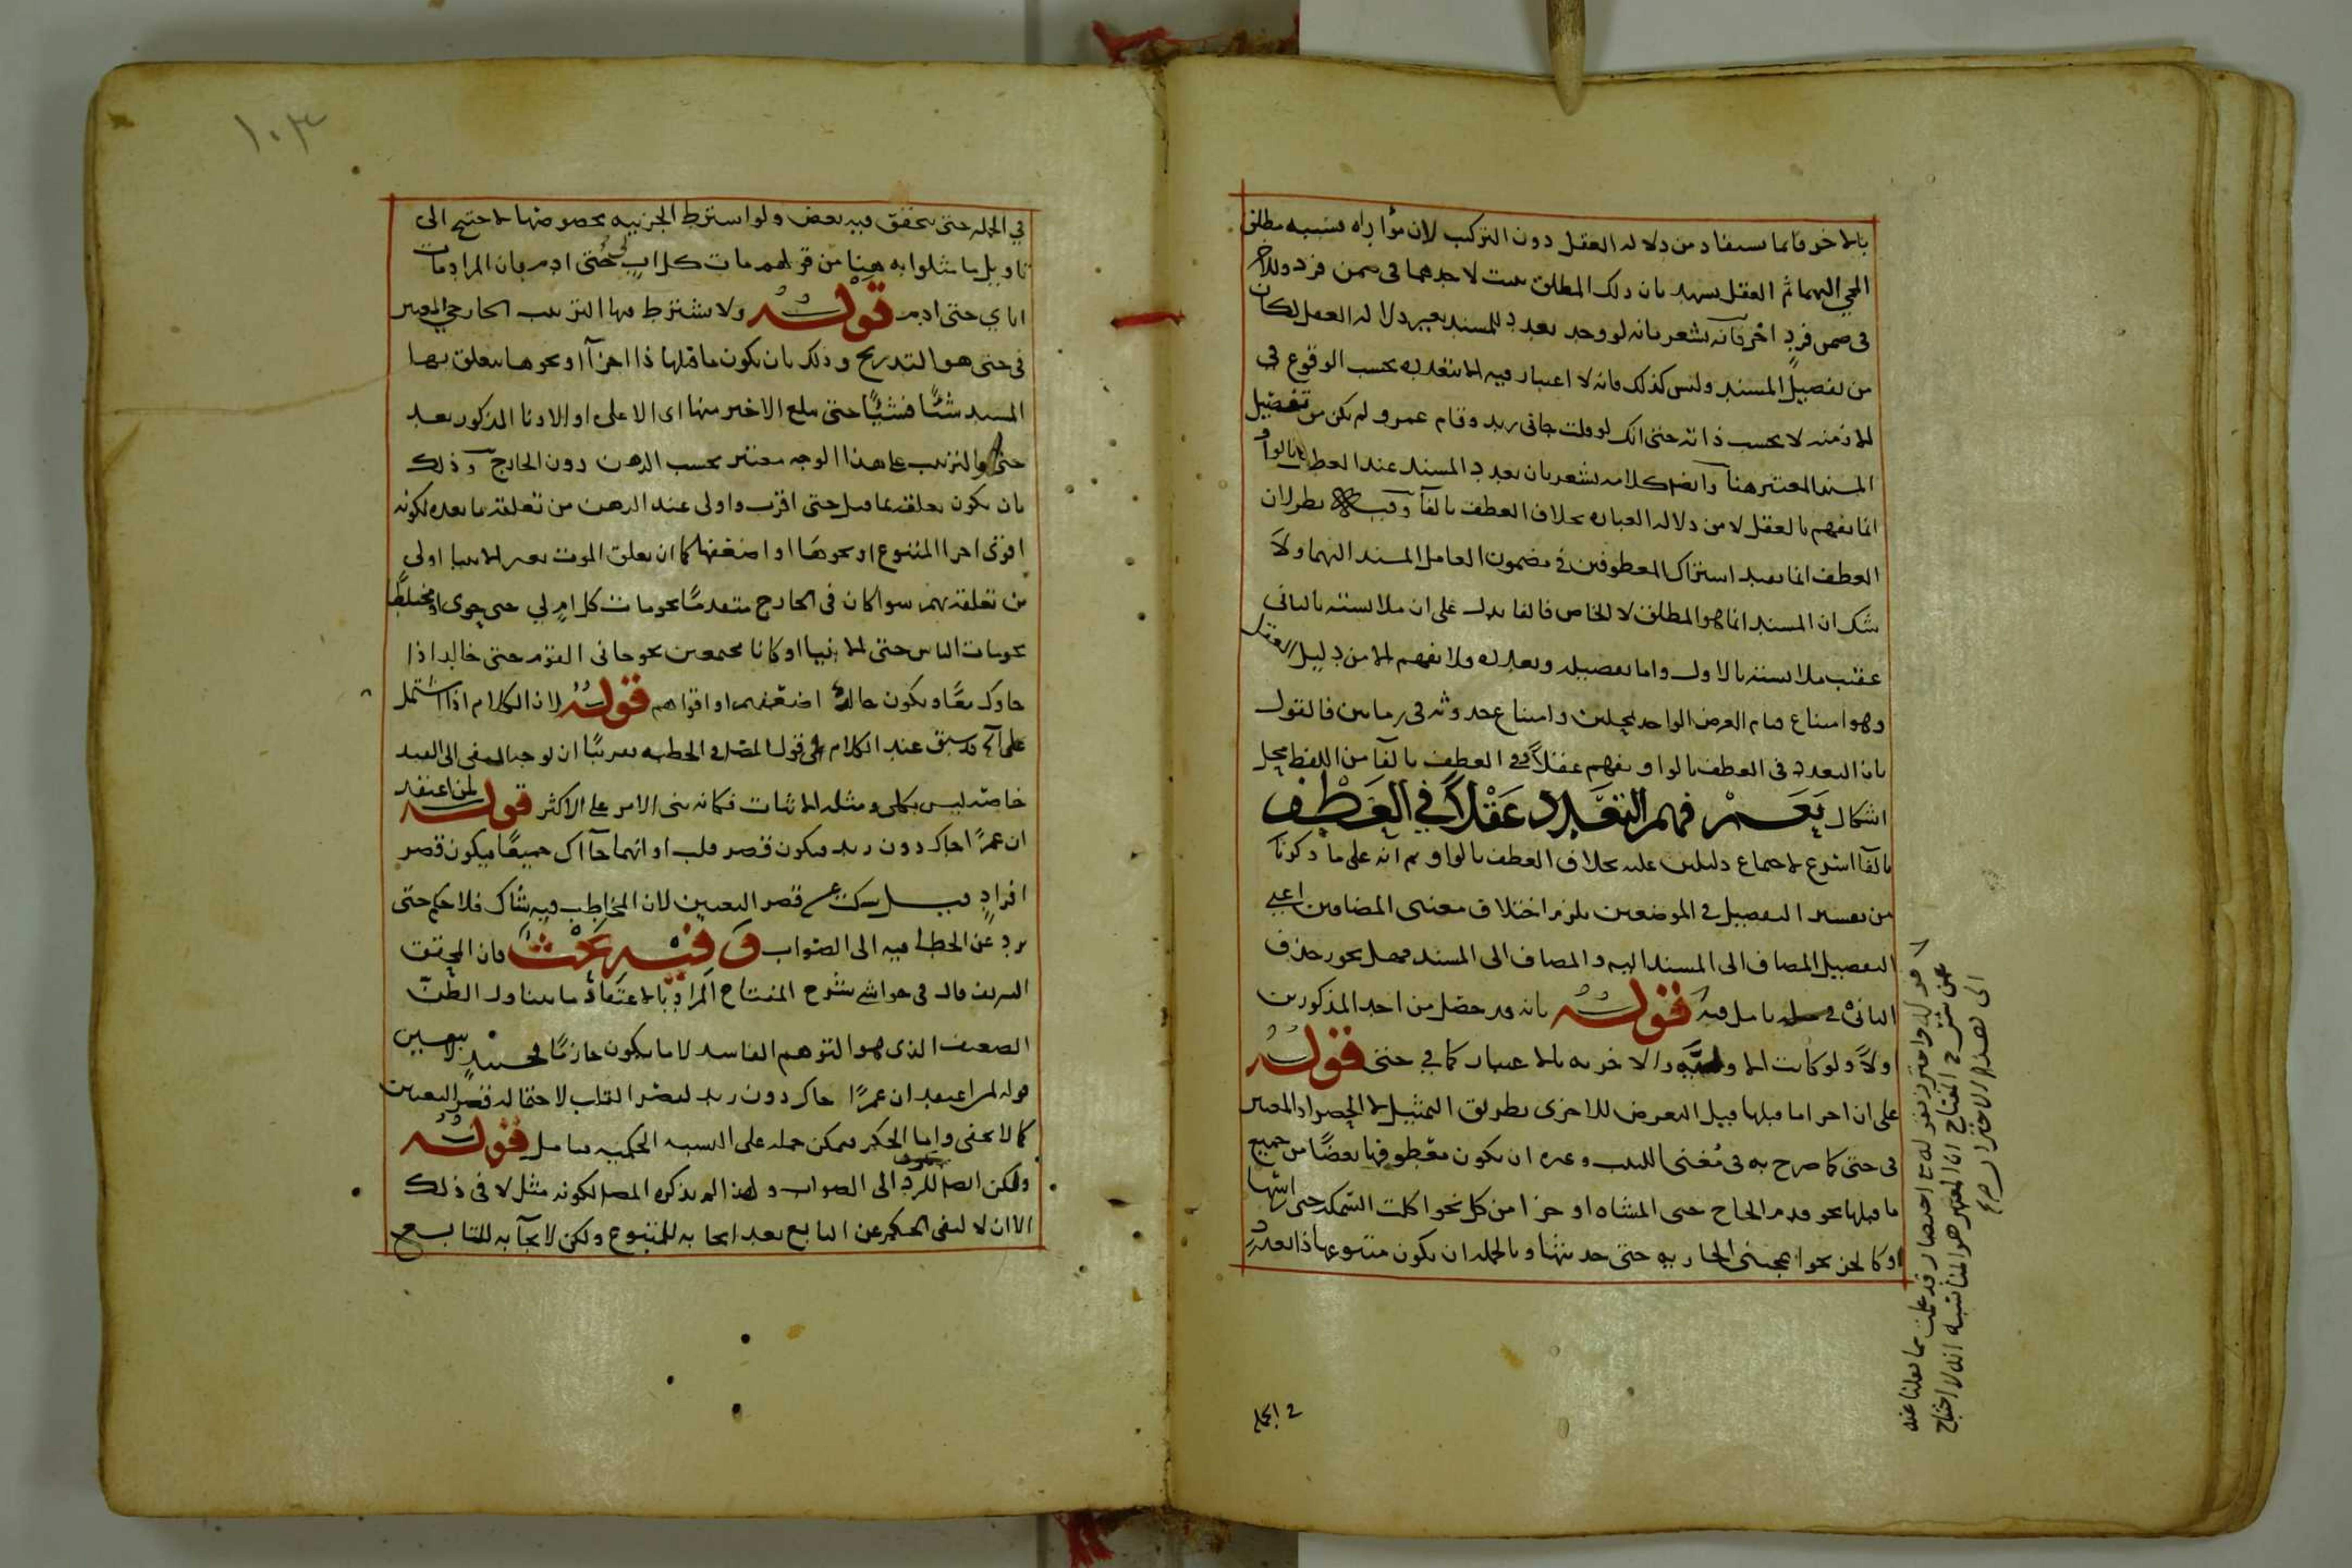 بالاخر فانما يستفاد من دلالة العقل دون التركيب لان مؤاراه نسبه مطلق
المجي اليهما ثم العقل يشهد بان ذلك المطلق يثبت لاحدهما في ضمن فرد وللاخر
في ضمن فرد اخر فانه يشعر بانه لو وجد تعدد للمسند بغير دلالة العقل لكان
من تفصيل المسند وليس كذلك فانه لا اعتبار فيه الا بتعدده بحسب الوقوع في
الازمنه لا بحسب ذاته حتى انك لو قلت جاني زيد وقام عمرو لم يكن من تفصيل
المسند المعتبر هنا وايضا كلامه يشعر بان تعدد المسند عند العطف بالواو
انما يفهم بالعقل لا من دلالة العبارة بخلاف العطف بالفآ وفيه نظر لان
العطف انما يفيد اشتراك المعطوفين في مضمون العامل المسند اليهما ولا
شك ان المسند انما هو المطلق لا الخاص فالفا يدل على ان ملابسته بالثاني
عقيب ملابسته بالاول واما تفصيله وتعدده فلا يفهم الا من دليل العقل
وهو امتناع قيام العرض الواحد بمحلين وامتناع حدوثه في زمانين فالقول
بان التعدد في العطف بالواو يفهم عقلا وفي العطف بالفآ من اللفظ محل
اشكال نعم فهم التعدد عقلا في العطف
بالفآ اسرع لاجتماع دليلين عليه بخلاف العطف بالواو ثم انه على ما ذكرنا
من تفسير التفصيل في الموضعين يلزم اختلاف معنى المضافين اعني
التفصيل المضاف الى المسند اليه والمضاف الى المسند فهل يجوز حذف
الثاني في تامل فيه قوله بانه قد حصل من احد المذكورين
اولاً ولو كانت الاوليه والاخريه بالاعتبار كما في حتى قوله
على ان اجزا ما قبلها قيل التعرض للاجزى بطريق التمثيل لا الحصر اذ المعتبر
في حتى كما صرح به في مغني اللبيب وغيره ان يكون معطوفها بعضًا من جميع
ما قبلها نحو قدم الحاج حتى المشاه او جزا من كل نحو اكلت السمكه حتى راسها
او كالجزء نحو اعجبتني الجاريه حتى حديثها وبالجملة ان يكون متبوعها ذا تعدد
قوله واحترز بقوله مع اختصار قد علمت مما نقلنا عنه
عن شرح المفتاح ان المعتبر هو المناسبه اذ لا احتياج
الى هذا الاحتراز
في الجمله
١٠٣
في الجمله حتى يتحقق فيه بعض ولو اشترط الجزئيه بخصوصها لاحتيج الى
تاويل ما مثلوا به هنا من قولهم مات كل اب لي حتى ادم بان المراد مات
اباي حتى ادم قوله ولا يشترط فيها الترتيب الخارجي المعتبر
في حتى هو التدريج وذلك بان يكون ما قبلها ذا اجزآ او نحوها يتعلق بها
المسند شيًا فشيًا حتى يبلغ الاخير منها اى الاعلى او الادنا المذكور بعد
حتى والترتيب على هذا الوجه معتبر بحسب الذهن دون الخارج وذلك
بان يكون تعلقه بما قبل حتى اقرب واولى عند الذهن من تعلقه بما بعده لكونه
اقوى اجزا المتبوع او نحوها او اضعفها كما ان تعلق الموت بغير الانبيا اولى
من تعلقه بهم سوا كان في الخارج متقدمًا نحو مات كل ام لي حتى حوى او مختلطًا
نحو مات الناس حتى الانبيا او كانا مجتمعين نحو جاني القوم حتى خالد اذا
جاوك معًا ويكون خالد اضعفهم او اقواهم قوله لان الكلام اذا اشتمل
على آخ قد سبق عند الكلام على قول المصنف في الخطبه تعريبًا ان توجه النفي الى القيد
خاصه ليس بكلي ومثله الاثبات فكانه بنى الامر على الاكثر قوله لمن اعتقد
ان عمرًا جاك دون زيد فيكون قصر قلب او انهما جآاك جميعًا فيكون قصر
افراد قيل سكت عن قصر التعيين لان المخاطب فيه شاك فلا حكم حتى
يرد عن الخطا فيه الى الصواب وفيه بحث فان المحقق
الشريف قال في حواشي شرح المفتاح المراد بالاعتقاد ما يتناول الظن
الضعيف الذى هو التوهم الفاسد لا ما يكون جازمًا فحينئذ لا يتعين
قوله لمن اعتقد ان عمرًا جاك دون زيد لقصر القلب لاحتماله قصر التعيين
كما لا يخفى واما الحكم فيمكن حمله على النسبه الحكميه فتامل قوله
ولكن ايضا للرد الى الصواب ولهذا لم يذكره المصنف لكونه مثل لا في ذلك
الا ان لا لنفي الحكم عن التابع بعد ايجابه للمتبوع ولكن لايجآبه للتابع